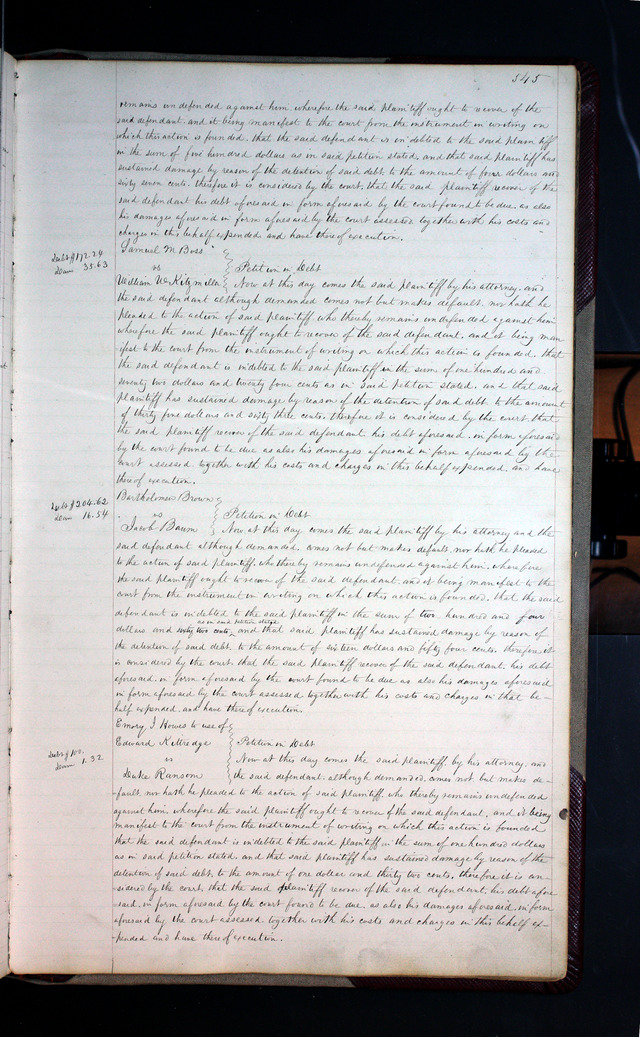 545
remains undefended against him wherefore the said plaintiff ought to recover of the
said defendant, and it being manifest to the court from the instrument in writing on
which this action is founded, that the said defendant is indebted to the said plaintiff
in the sum of five hundred dollars as in said petition stated, and that said plaintiff has
sustained damage by reason of the detention of said debt to the amount of four dollars and
sixty seven cents. therefore it is considered by the court, that the said plaintiff recover of the
said defendant his debt aforesaid in form aforesaid by the court found to be due, as also
his damages aforesaid in form aforesaid by the court assessed together with his costs and
charges in this behalf expended and have thereof execution.
Samuel M
Debt $172.24
Dam 35.63
vs Petition in Debt
William W Kitzmiller Now at this day comes the said plaintiff by his attorney, and
the said defendant although demanded comes not but makes default, nor hath he
pleaded to the action of said plaintiff who thereby remains undefended against him
wherefore the said plaintiff ought to recover of the said defendant, and it being man
ifest to the court from the instrument of writing on which this action is founded that
the said defendant is indebted to the said plaintiff in the sum of one hundred and
seventy two dollars and twenty four cents as in said petition stated, and that said
plaintiff has sustained damage by reason of the detention of said debt to the amount
of thirty five dollars and sixty three cents, therefore it is considered by the court that
the said plaintiff recover of the said defendant his debt aforesaid, in form aforesaid
by the court found to be due as also his damages aforesaid in form aforesaid by the
court assessed together with his costs and charges in this behalf expended, and have
thereof execution.
Bartholomew Brown
Debt $204.62
Dam 16.54
vs Petition in Debt
Jacob Baum Now at this day comes the said plaintiff by his attorney and the
said defendant although demanded, comes not but makes default, nor hath he pleaded
to the action of said plaintiff, who thereby remains undefended against him, wherefore
the said plaintiff ought to recover of the said defendant, and it being manifest to the
court from the instrument in writing on which this action is founded, that the said
defendant is indebted to the said plaintiff in the sum of two hundred and four
as in said petition stated
dollars and sixty two cents, and that said plaintiff has sustained damage by reason of
the detention of said debt, to the amount of sixteen dollars and fifty four cents, therefore it
is considered by the court, that the said plaintiff recover of the said defendant, his debt
aforesaid, in form aforesaid by the court found to be due as also his damages aforesaid
in form aforesaid by the court assessed together with his costs and charges in that be-
half expended, and have thereof execution.
Emory J Howes to use of
Edward Kittredge Petition in Debt
Debt $100.
Dam 1.32
vs Now at this day comes the said plaintiff, by his attorney, and
Luke Ransom the said defendant, although demanded, comes not but makes de-
fault, nor hath he pleaded to the action of said plaintiff, who thereby remains undefended
against him, wherefore the said plaintiff ought to recover of the said defendant, and it being
manifest to the court from the instrument of writing on which this action is founded
that the said defendant is indebted to the said plaintiff in the sum of one hundred dollars
as in said petition stated, and that said plaintiff has sustained damage by reason of the
detention of said debt, to the amount of one dollar and thirty two cents, therefore it is con-
-sidered by the court, that the said plaintiff recover of the said defendant, his debt afore
-said, in form aforesaid by the court found to be due, as also his damages aforesaid, in form
aforesaid by the court assessed together with his costs and charges in this behalf ex-
-pended and have thereof execution.